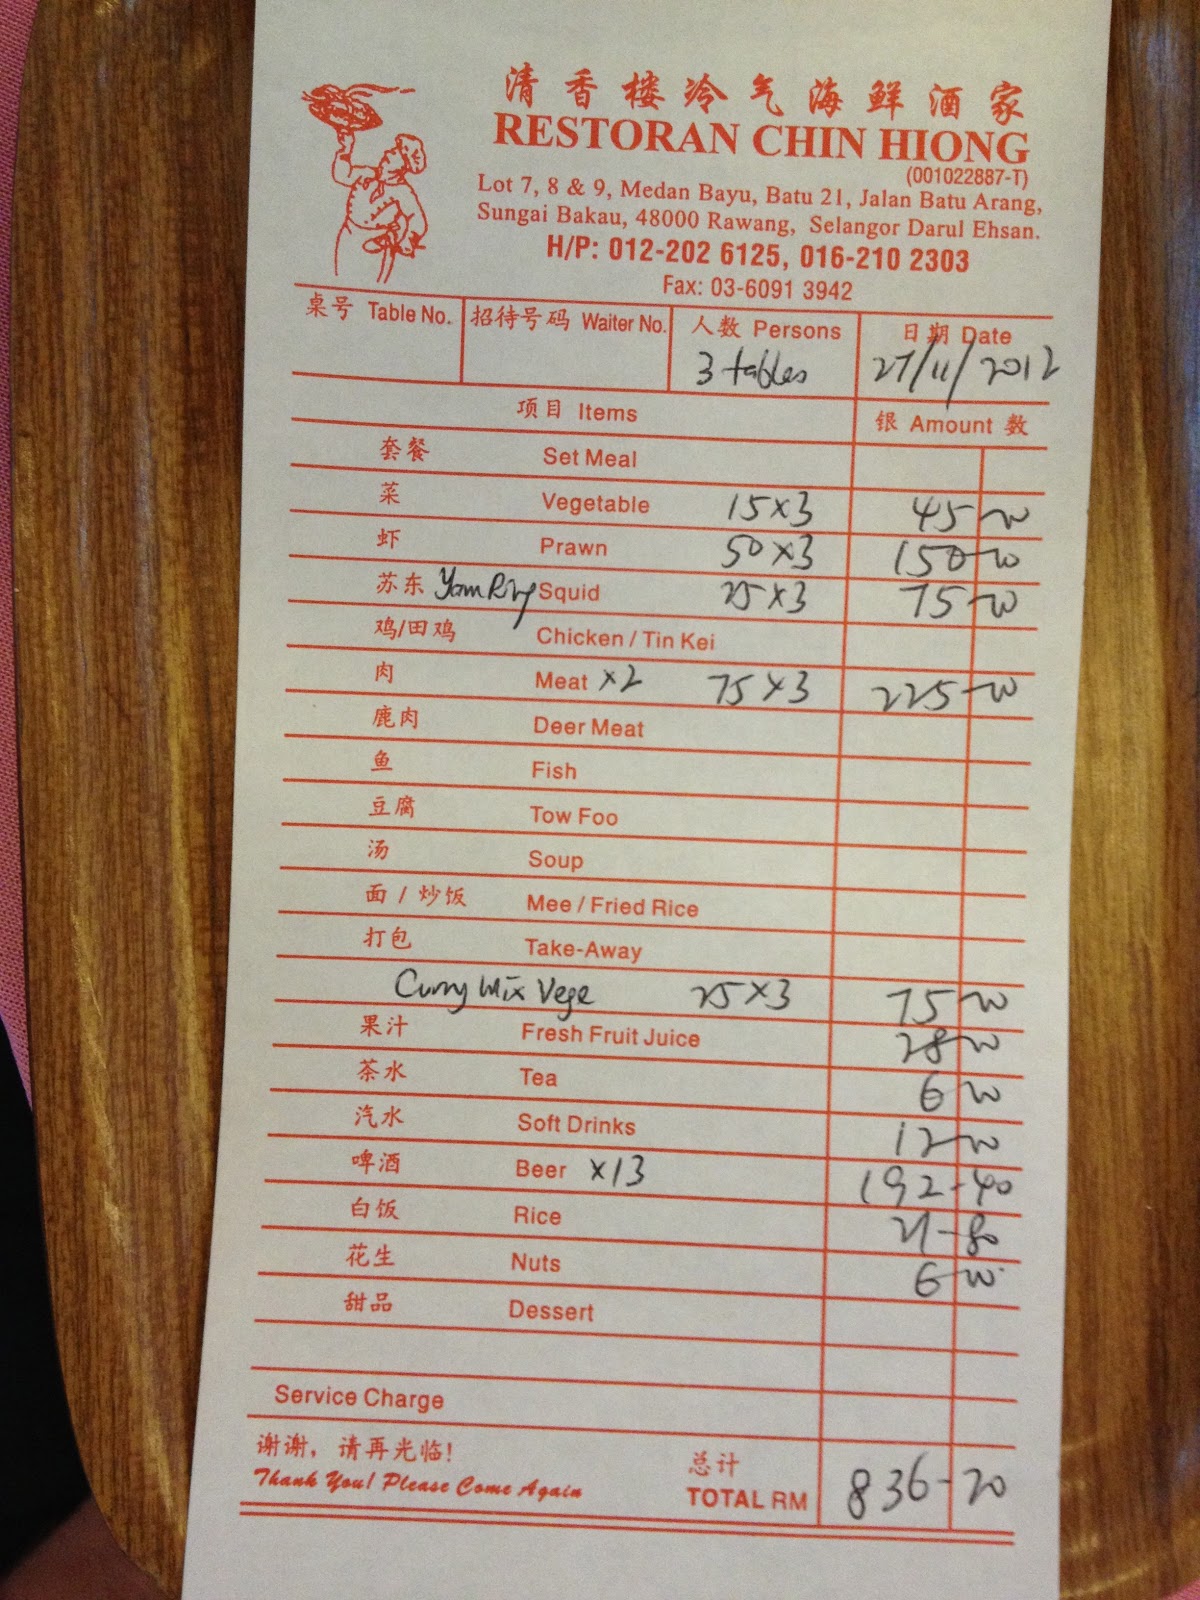 清香楼冷气海鲜酒家
RESTORAN CHIN HIONG
(001022887-T)
Lot 7, 8 & 9, Medan Bayu, Batu 21, Jalan Batu Arang,
Sungai Bakau, 48000 Rawang, Selangor Darul Ehsan.
H/P: 012-202 6125, 016-210 2303
Fax: 03-6091 3942
桌号 Table No. 招待号码 Waiter No. 人数 Persons 日期 Date
3 tables 27/11/2012
项目 Items 银 Amount 数
套餐 Set Meal
菜 Vegetable 15x3 45-00
虾 Prawn 50x3 150-00
苏东 Yam Ring Squid 25x3 75-00
鸡/田鸡 Chicken / Tin Kei
肉 Meat x2 75x3 225-00
鹿肉 Deer Meat
鱼 Fish
豆腐 Tow Foo
汤 Soup
面 / 炒饭 Mee / Fried Rice
打包 Take-Away
Curry Mix Vege 25x3 75-00
果汁 Fresh Fruit Juice 28-00
茶水 Tea 6-00
汽水 Soft Drinks 12-00
啤酒 Beer x13 192-40
白饭 Rice 21-80
花生 Nuts 6-00
甜品 Dessert
Service Charge
谢谢，请再光临! 总计
Thank You! Please Come Again TOTAL RM 836-20